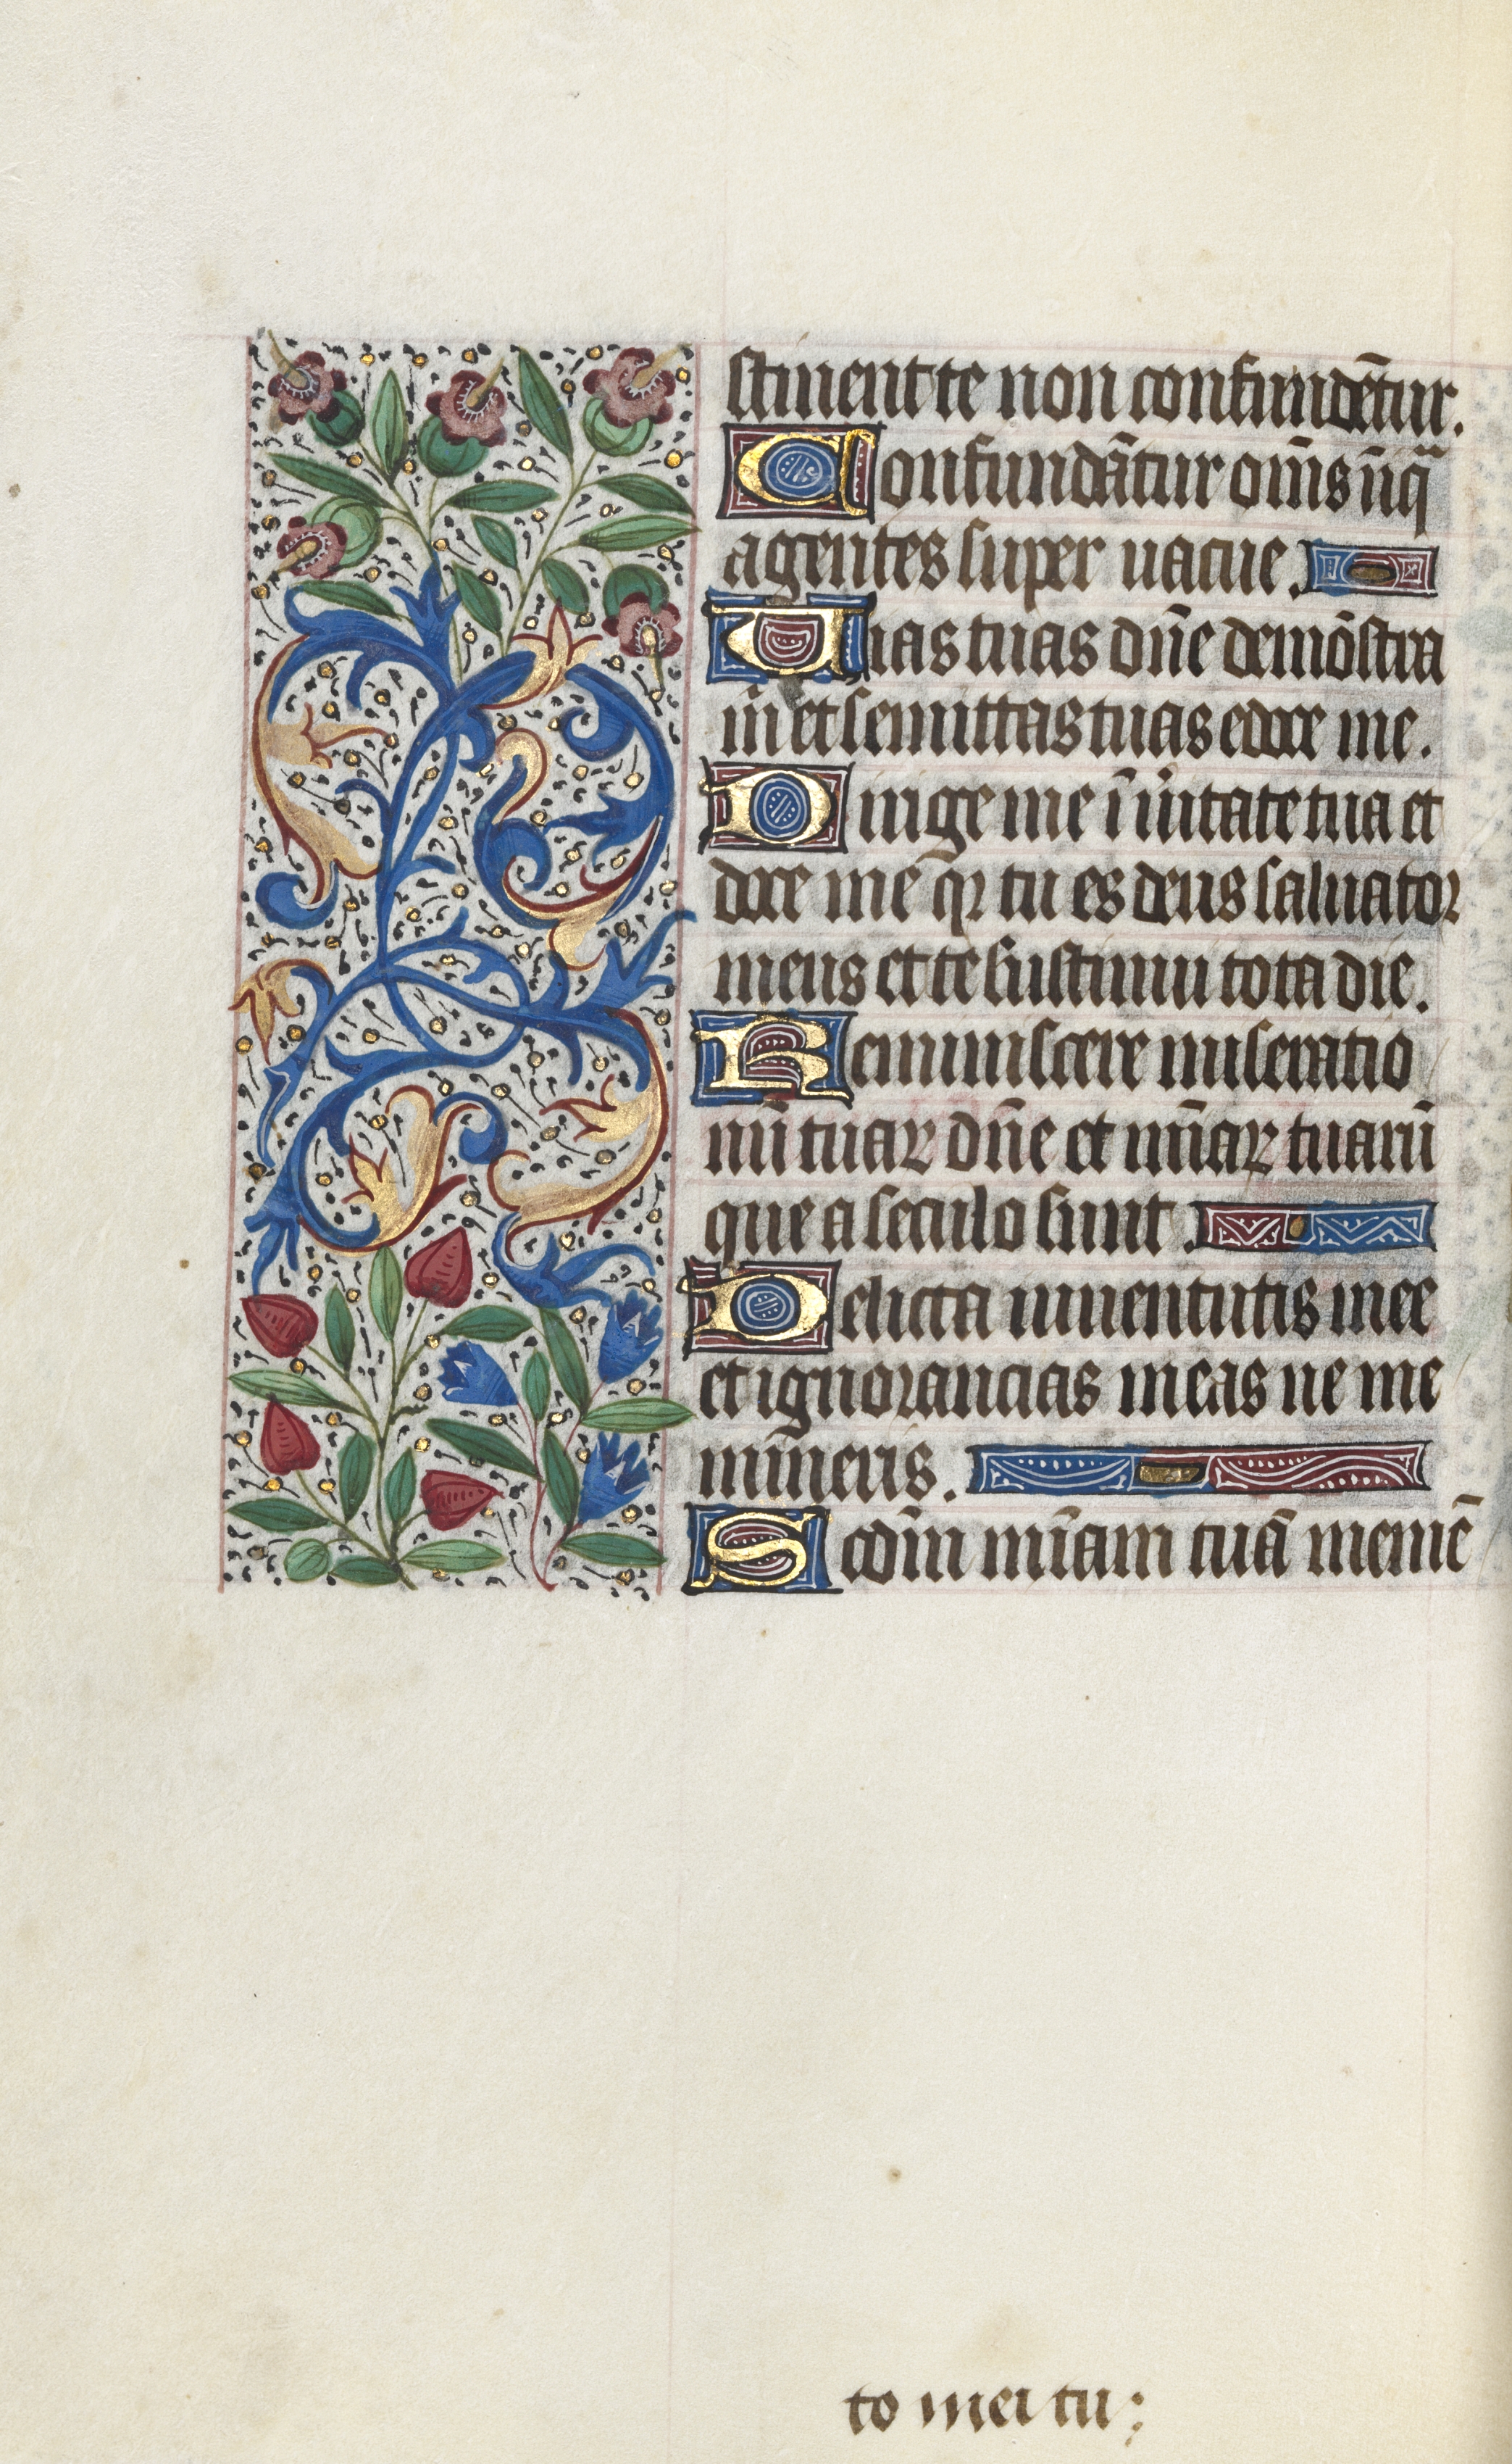 stinent te non confundēt̄ur.
Confundāt̄ur om̄s īiq̄
agentes super uacue.
Uias tuas dn̄e demōstra
m̄ et semittas tuas edoce me.
Dirige me ī ūitate tua et
doce me q̄r tu es deus saluator
meus et te sustinui tota die.
Reminiscere miseratio
nū tuaꝝ dn̄e et mīaꝝ tuarū
que a seculo sunt.
Delicta iuuentutis mee
et ignorancias meas ne me
mīneris.
Scdm̄ mīam tuā memē
to mei tu: